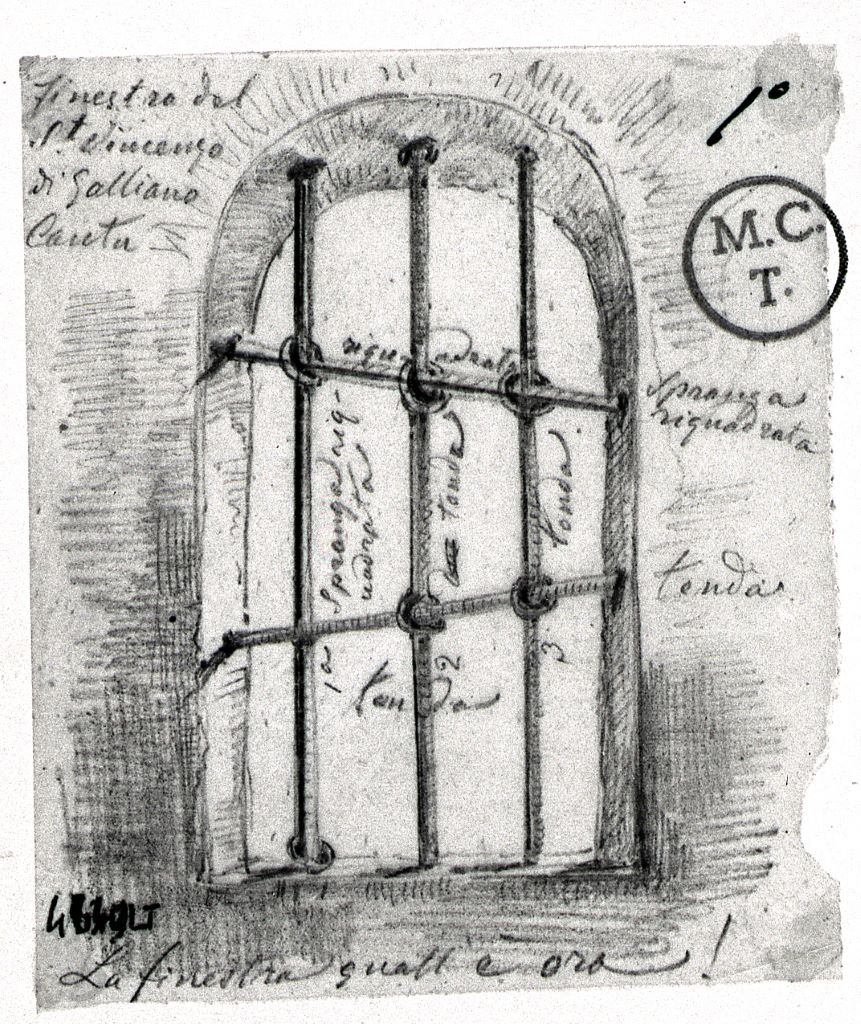 finestra del
St. Vincenzo
di Galliano
Cantu
1º
M.C.
T.
riquadrata
Spranga
riquadrata
Spranga riq-
uadrata
tonda
tonda
tonda
1ª
2
3
tonda
La finestra quall è ora !